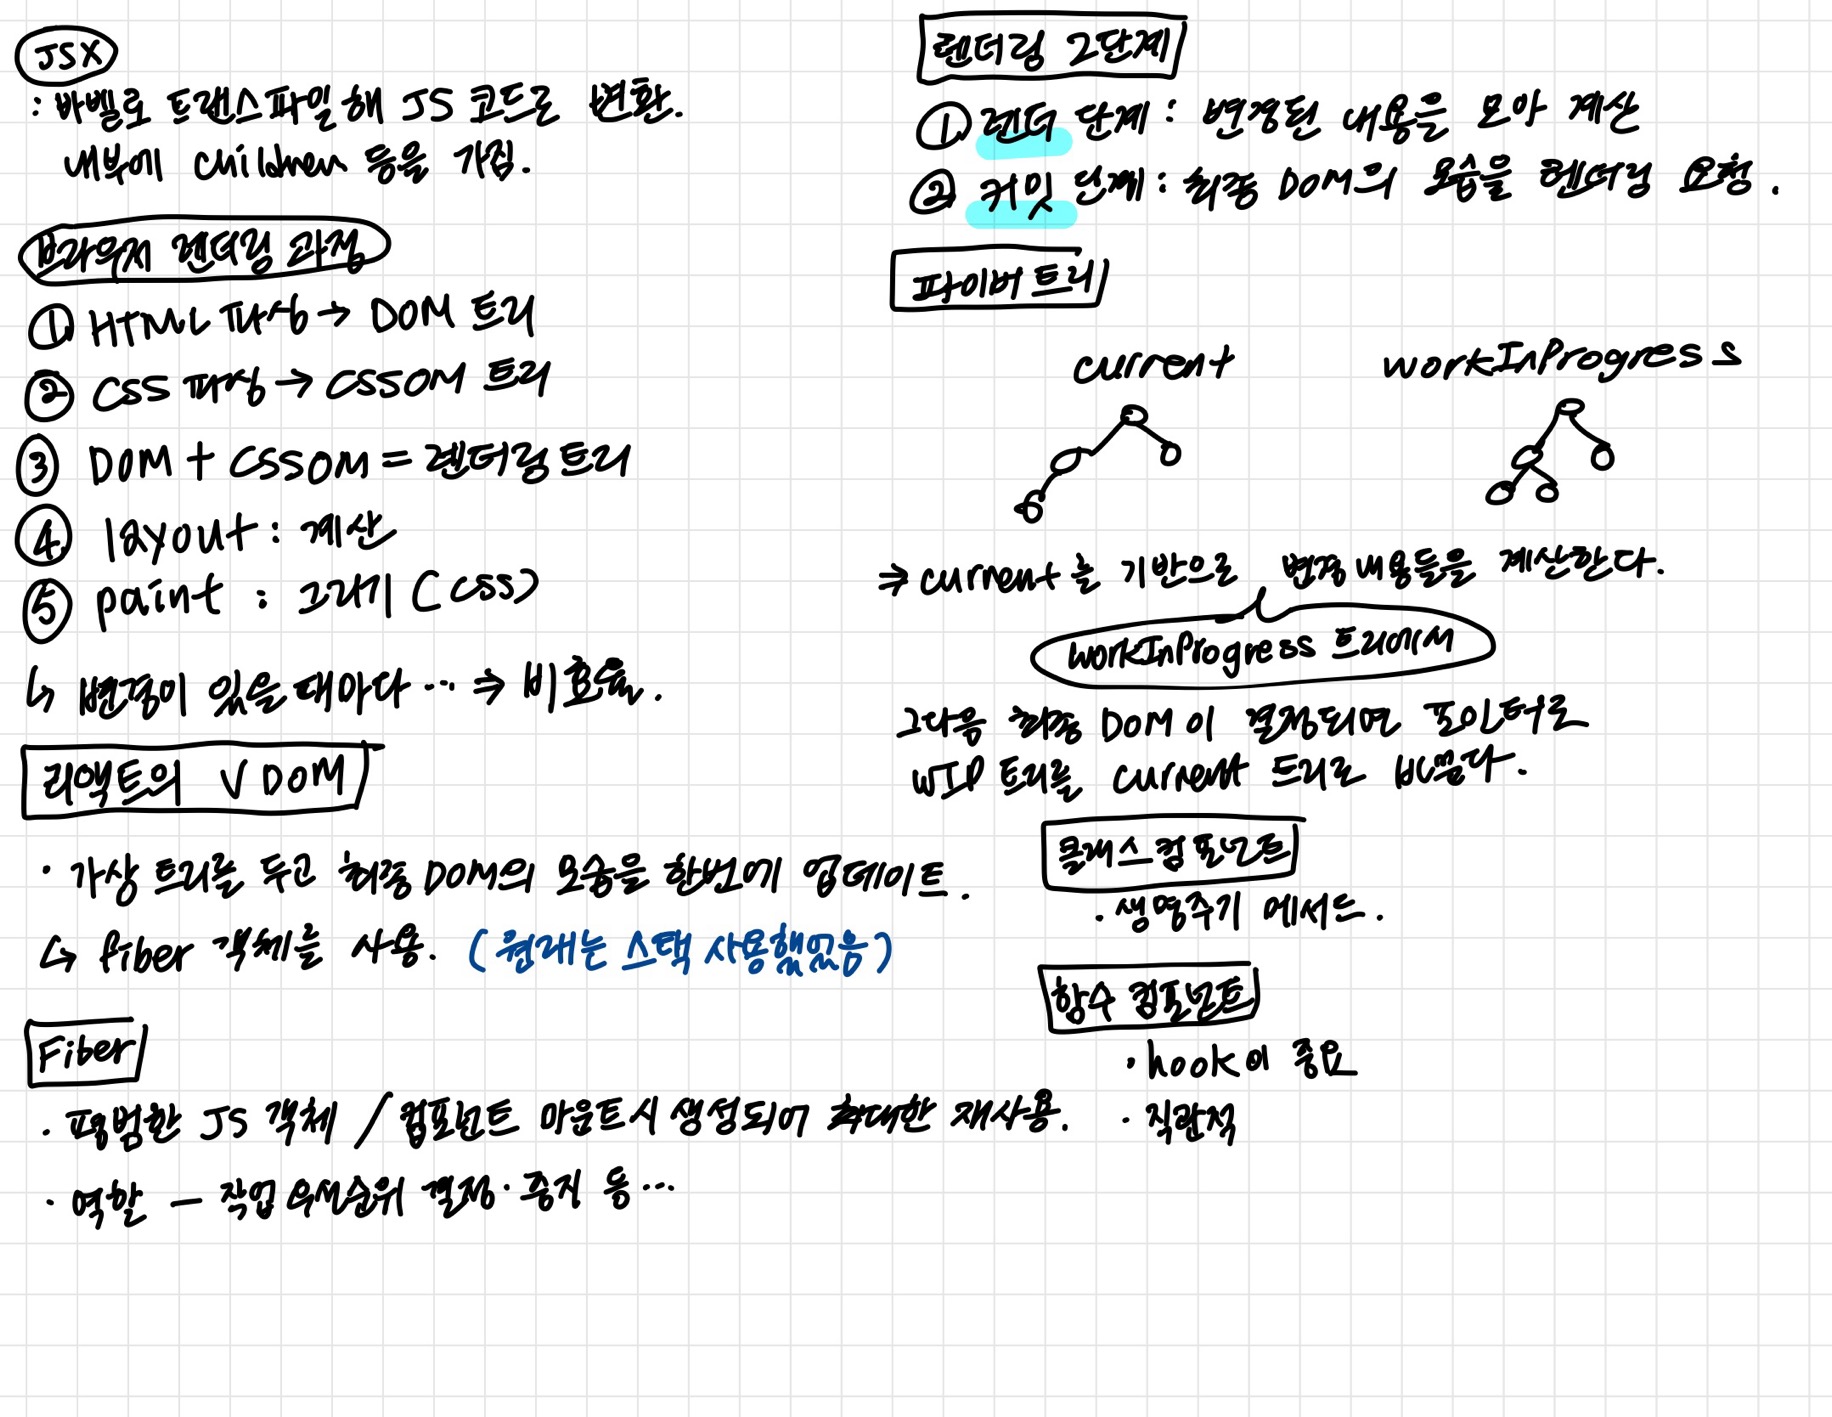 JSX
: 바벨로 트랜스파일해 JS 코드로 변환.
내부에 children 등을 가짐.
브라우저 렌더링 과정
① HTML 파싱 → DOM 트리
② CSS 파싱 → CSSOM 트리
③ DOM + CSSOM = 렌더링 트리
④ layout : 계산
⑤ paint : 그리기 (CSS)
↳ 변경이 있을 때마다 ··· ⇒ 비효율.
리액트의 V DOM
· 가상 트리를 두고 최종 DOM의 모습을 한번에 업데이트.
↳ fiber 객체를 사용. (원래는 스택 사용했었음)
Fiber
· 평범한 JS 객체 / 컴포넌트 마운트시 생성되어 최대한 재사용.
· 역할 — 작업 우선순위 결정· 중지 등 ···
렌더링 2단계
① 렌더 단계 : 변경된 내용을 모아 계산
② 커밋 단계 : 최종 DOM의 모습을 렌더링 요청.
파이버 트리
current workInProgress
⇒ current를 기반으로 변경 내용들을 계산한다.
workInProgress 트리에서
그다음 최종 DOM이 결정되면 포인터로
WIP 트리를 current 트리로 바꾼다.
클래스 컴포넌트
· 생명주기 메서드.
함수 컴포넌트
· hook이 중요
· 직관적